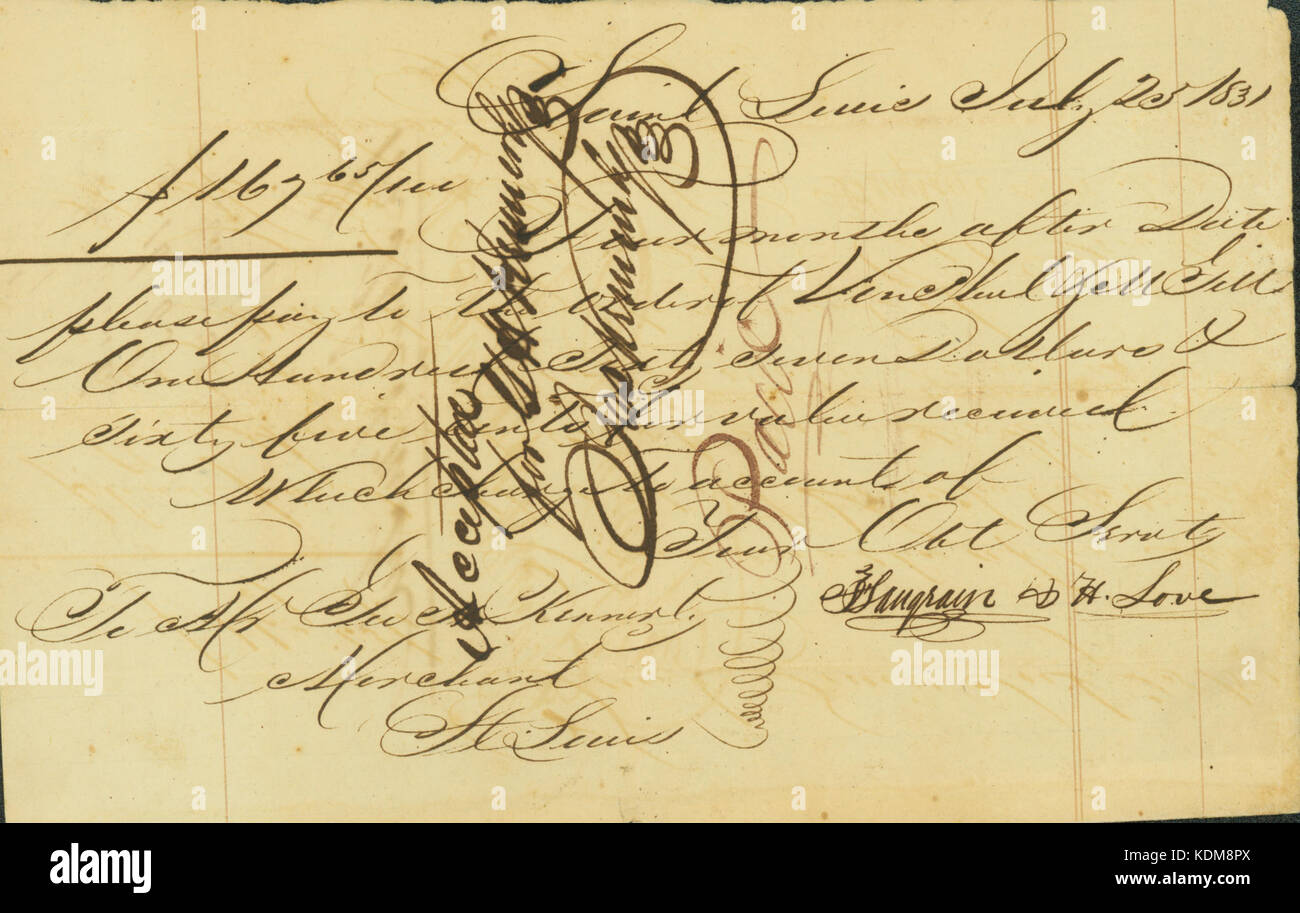 Saint Louis July 25 1831
$167 65/100
Four months after Date
please pay to the order of
One Hundred Sixty Seven Dollars &
sixty five cents for value received
Which charge to account of
Your Obt Servts
Saugrain & H. Love
To Mr Geo H Kennerly
Merchant
St Louis
Accepted
for
Paid
alamy
alamy
Image ID: KDM8PX
www.alamy.com